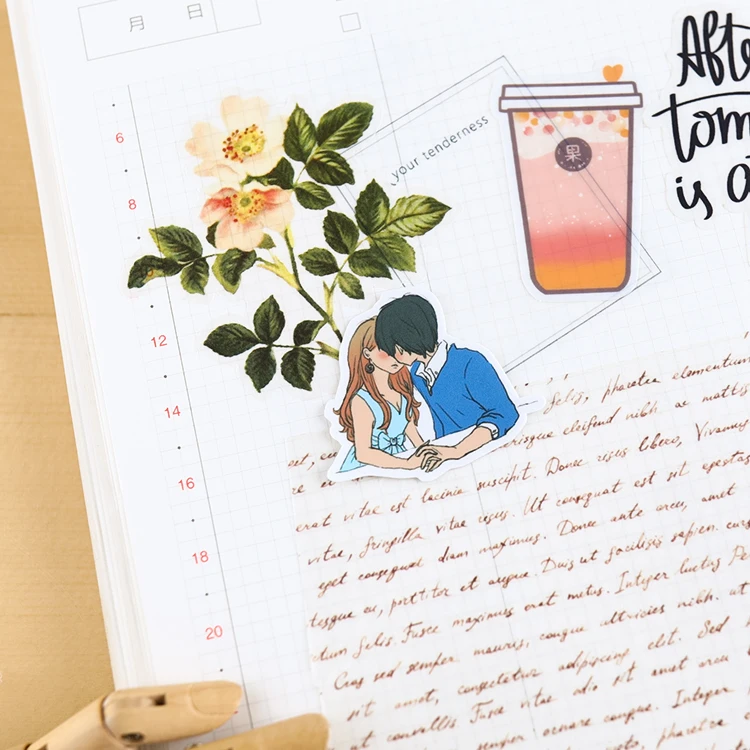 月 日
6
8
12
14
16
18
20
your tenderness
果
Afte
tom
is a
felis, pharetra elementum
et, cu erisque eleifend nibh ac mattis
erat vitae est lacinia suscipit. Donec risus libero, Vivamus
vitae, fringilla vitae risus. Ut consequat est sit egestas
eget consequat diam maximus. Donec ante arcu, amet
tesque eu, porttitor et augue. Duis ut facilisis sapien. cur
dum felis. Fusce maximus erat metus. Integer luctus Pe
Cras sed semper mauris, congue ultricies nibh. ut
sit amet, consectetur adipiscing elit. Sed
at convallis. Fusce vitae odio sit amet arcu
semper ornare congue. Integer
pharetra